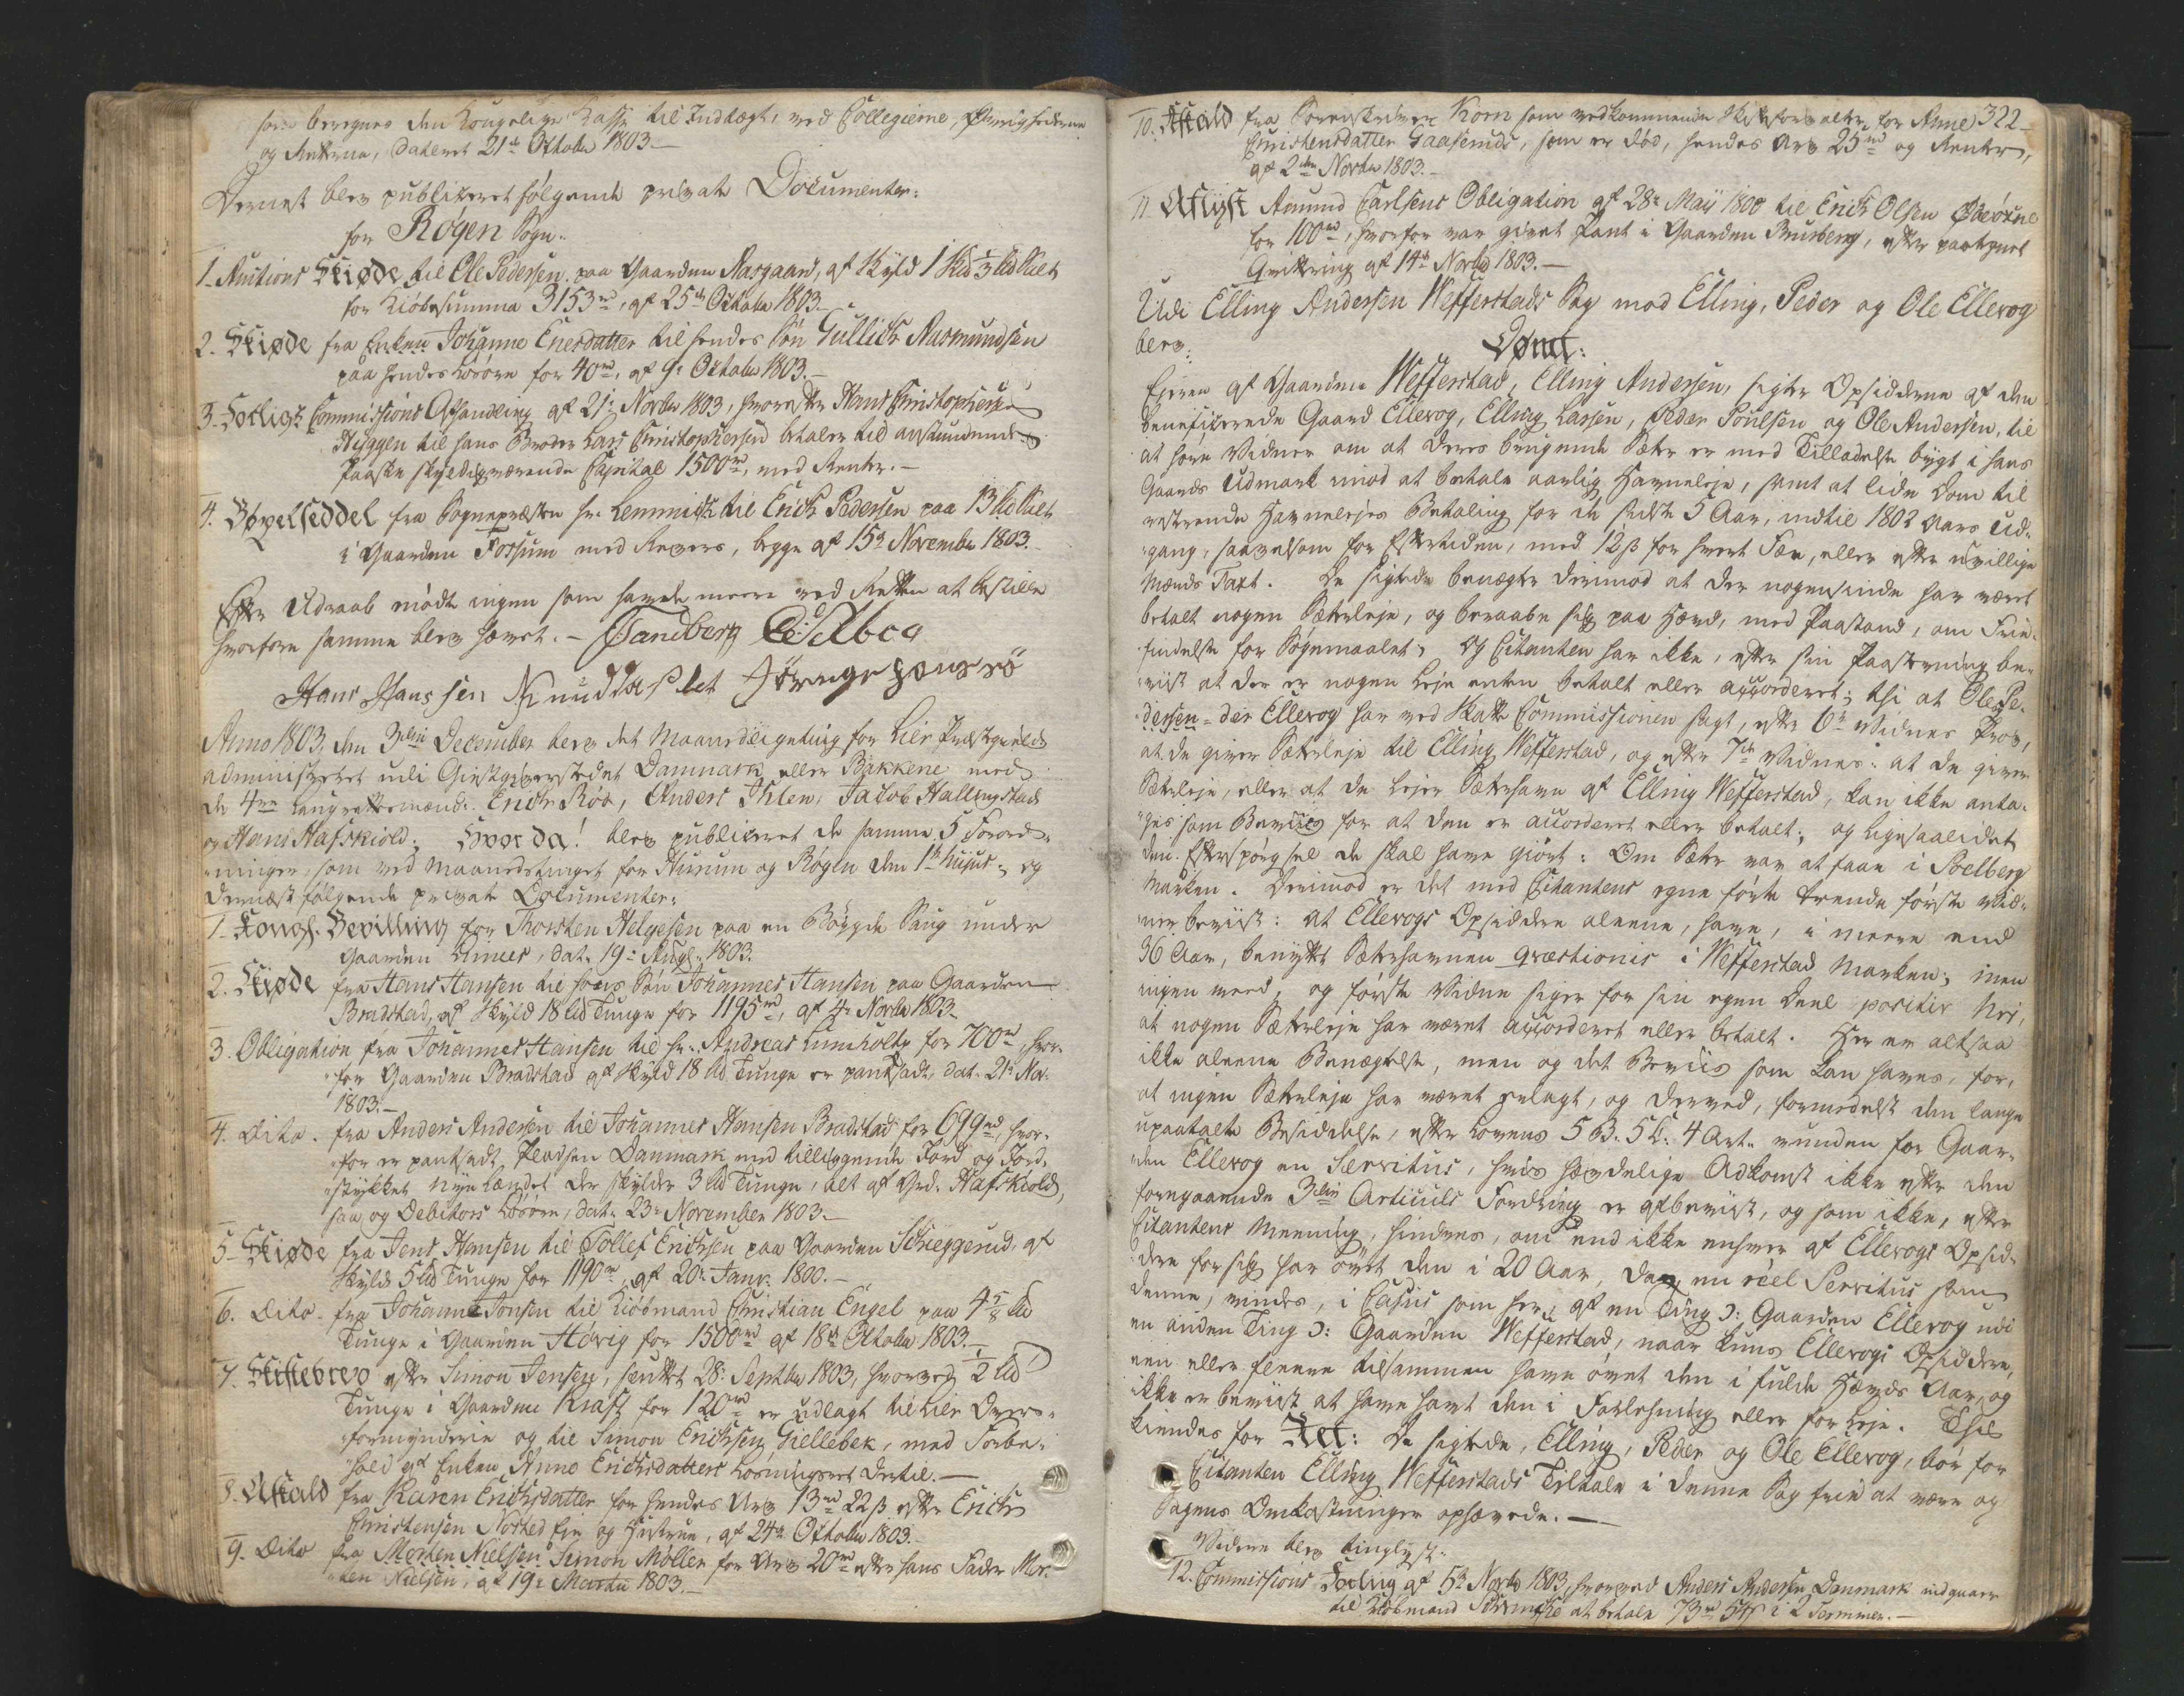 som beregnes den Kongelige Kasse til Indtægt, ved Collegierne, Øvrighederne
og Retterne, dateret 21de Octobr 1803 —
Dernæst blev publiceret følgende private Documenter:
for Røgen Sogn.
1. Auctions Skiøde til Ole Pedersen paa Gaarden Aasgaard, af Skyld 1 Skd ⅓ Ld Salt
for Kiøbesumma 3153 rd, af 25de Octobr 1803. —
2. Skiøde fra Enken Johanne Enersdatter til hendes Søn Gullich Aasmundsen
paa hendes Løsøre for 40 rd, af 9de Octobr 1803. —
3. Forligs Commissions Afhandling af 21de Novbr 1803, hvorefter Hans Christophersen
Hyggen til hans Broder Lars Christophersen betaler til anstundende
Paaske skyldigværende Capital 1500 rd, med Renter. —
4. Bøxelseddel fra Sognepræsten Hr. Lemmich til Erich Pedersen paa 13 Ld Salt
i Gaarden Fossum med Revers, begge af 15de November 1803.
Efter Udraab mødte ingen som havde meere ved Retten at bestille
hvorfore samme blev hævet. — Tandberg
Hans Hanssen Knud Jørgen
Anno 1803, den 3die December blev det Maanedlige ting for Lier Præstegield
administreret udi Giestgiverstedet Danmark eller Bakkene med
de 4re Laugrettesmænd: Erich Røv, Anders Ihlen, Jacob Hallingstad
og Hans Hafskiold. Hvor da! blev publiceret de samme 5 Forord-
ninger, som ved Maanedstinget for Hurum og Røgen den 1ste hujus; og
dernæst følgende private Documenter:
1. Kongl. Bevilling for Thorsten Helgesen paa en Bøygde Saug under
Gaarden Linnes, dat. 19de Augl. 1803.
2. Skiøde fra Hans Hansen til hans Søn Johannes Hansen paa Gaarden
Bradstad, af Skyld 18 Ld Tunge for 1195 rd, af 4de Novbr 1803.
3. Obligation fra Johannes Hansen til Hr. Andreas Lumholtz for 700 rd, hvor-
for Gaarden Bradstad af Skyld 18 Ld Tunge er pantsadt, dat. 21de Nov.
1803. —
4. Dito. fra Anders Andersen til Johannes Hansen Bradstad for 699 rd, hvor-
for er pantsadt Pladsen Danmark med tilliggende Jord og Jord-
stykket Nye Landet der skylder 3 Ld Tunge, alt af Grd. Hafskiold,
saa og Debitors Løsøre, dat. 23de November 1803. —
5. Skiøde fra Jens Hansen til Tollef Erichsen paa Gaarden Scheggerud, af
Skyld 5 Ld Tunge for 1190 rd, af 20de Janr. 1800. —
6. Dito. fra Johannes Jonsen til Kiøbmand Christian Engel paa 4⅝ Ld
Tunge i Gaarden Høvig for 1500 rd af 18de Octobr 1803. —
7. Skiftebrev efter Simon Jensen, sluttet 28de Septbr 1803, hvorved ½ Ld
Tunge i Gaarden Kraft for 120 rd er udlagt til Lier Over-
formynderie og til Simon Erichsen Giellebek, med Forbe-
hold af Enken Anne Erichsdatters Løsningsret dertil. —
8. Afkald fra Karen Erichsdatter for hendes Arv 13 rd 22 ß efter Erich
Christensen Nordsted Eje og Hustrue, af 24de Octobr 1803. —
9. Dito fra Morten Nielsen Simon Møller for Arv 20 rd efter hans Fader Mor-
ten Nielsen, af 19de Martii 1803. —
322.
10. Afkald fra Sorenskriver Korn som vedkommende Skifteforvalter for Anne
Christensdatter Gaaserud, som er død, hendes Arv 25 rd og Renter,
af 2den Novbr 1803. —
11. Aflyst Amund Carlsens Obligation af 28de Maij 1800 til Erich Olsen Ødeørne
for 100 rd, hvorfor var givet Pant i Gaarden Brusberg, efter paategnet
Qvittering af 14de Novbr 1803. —
Udi Elling Andersen Wefferstads Sag mod Elling, Peder og Ole Ellevog
blev:
Dømt:
Ejeren af Gaarden Wefferstad, Elling Andersen, sigter Opsidderne af den
beneficerede Gaard Ellevog, Elling Larsen, Peder Poulsen og Ole Andersen, til
at høre Vidner om at deres brugende Sæter er med Tilladelse bygt i hans
Gaards Udmark imod at betale aarlig Havneleje, samt at lide Dom til
resterende Havnelejes Betaling for de sidste 5 Aar, indtil 1802 Aars Ud-
gang, saavelsom for Eftertiden, med 12 ß for hvert Fæe, eller efter uvillige
Mænds Taxt. De sigtede benægter derimod at der nogensinde har været
betalt nogen Sæterleje, og beraabe sig paa Hævd, med Paastand, om Frie-
findelse for Søgemaalet. Og Citanten har ikke, efter sin Paastevning be-
viist at der er nogen Leje enten betalt eller accorderet; thi at Ole Pe-
dersen = der Ellevog har ved Skatte Commissionen sagt, efter 6te Vidnes Prov,
at de giver Sæterleje til Elling Wefferstad, og efter 7de Vidnes: at de giver
Sæterleje, eller at de lejer Sæterhavn af Elling Wefferstad, kan ikke anta-
ges som Beviis for at den er accorderet eller betalt; og ligesaalidet
den Efterspørgsel de skal have giort: Om Sæter var at faae i Soelberg
Marken. Derimod er det med Citantens egne førte trende første Vid-
ner beviist: at Ellevogs Opsiddere aleene, have, i meere end
36 Aar, benyttet Sæterhavnen qvæstionis i Wefferstad Marken; men
ingen meed, og første Vidne siger for sin egen Deel positiv Nei,
at nogen Sæterleje har været accorderet eller betalt. Her er altsaa
ikke aleene Benægtelse, men og det Beviis som kan haves, for,
at ingen Sæterleje har været erlagt, og derved, formedelst den lange
upaatalte Besiddelse, efter Lovens 5 B: 5 C: 4 Art: vunden for Gaar-
den Ellevog en Servitus, hvis hævdelige Adkomst ikke efter den
foregaaende 3die Articuls Fordring er afbeviist, og som ikke, efter
Citantens Meening, hindres, om end ikke enhver af Ellevogs Opsid-
dere for sig har øvet den i 20 Aar, da en reel Servitus som
denne, vindes, i Casus som her, af en Ting ɔ: Gaarden Ellevog udi
en anden Ting ɔ: Gaarden Wefferstad, naar kuns Ellevogs Opsiddere,
een eller fleere tilsammen have øvet den i fulde Hævds Aar, og
ikke er beviist at have havt den i Forlehning eller for Leje. Thi
kiendes for Ret: De sigtede, Elling, Peder og Ole Ellevog, bør for
Citanten Elling Wefferstads Tiltale i denne Sag frie at være og
Sagens Omkostninger ophævede. —
Videre blev tinglyst:
12. Commissions Forlig af 5te Novbr 1803, hvorved Anders Andersen Danmark indgaaer
til Kiøbmand at betale 73 rd 54 ß i 2 Terminer. —